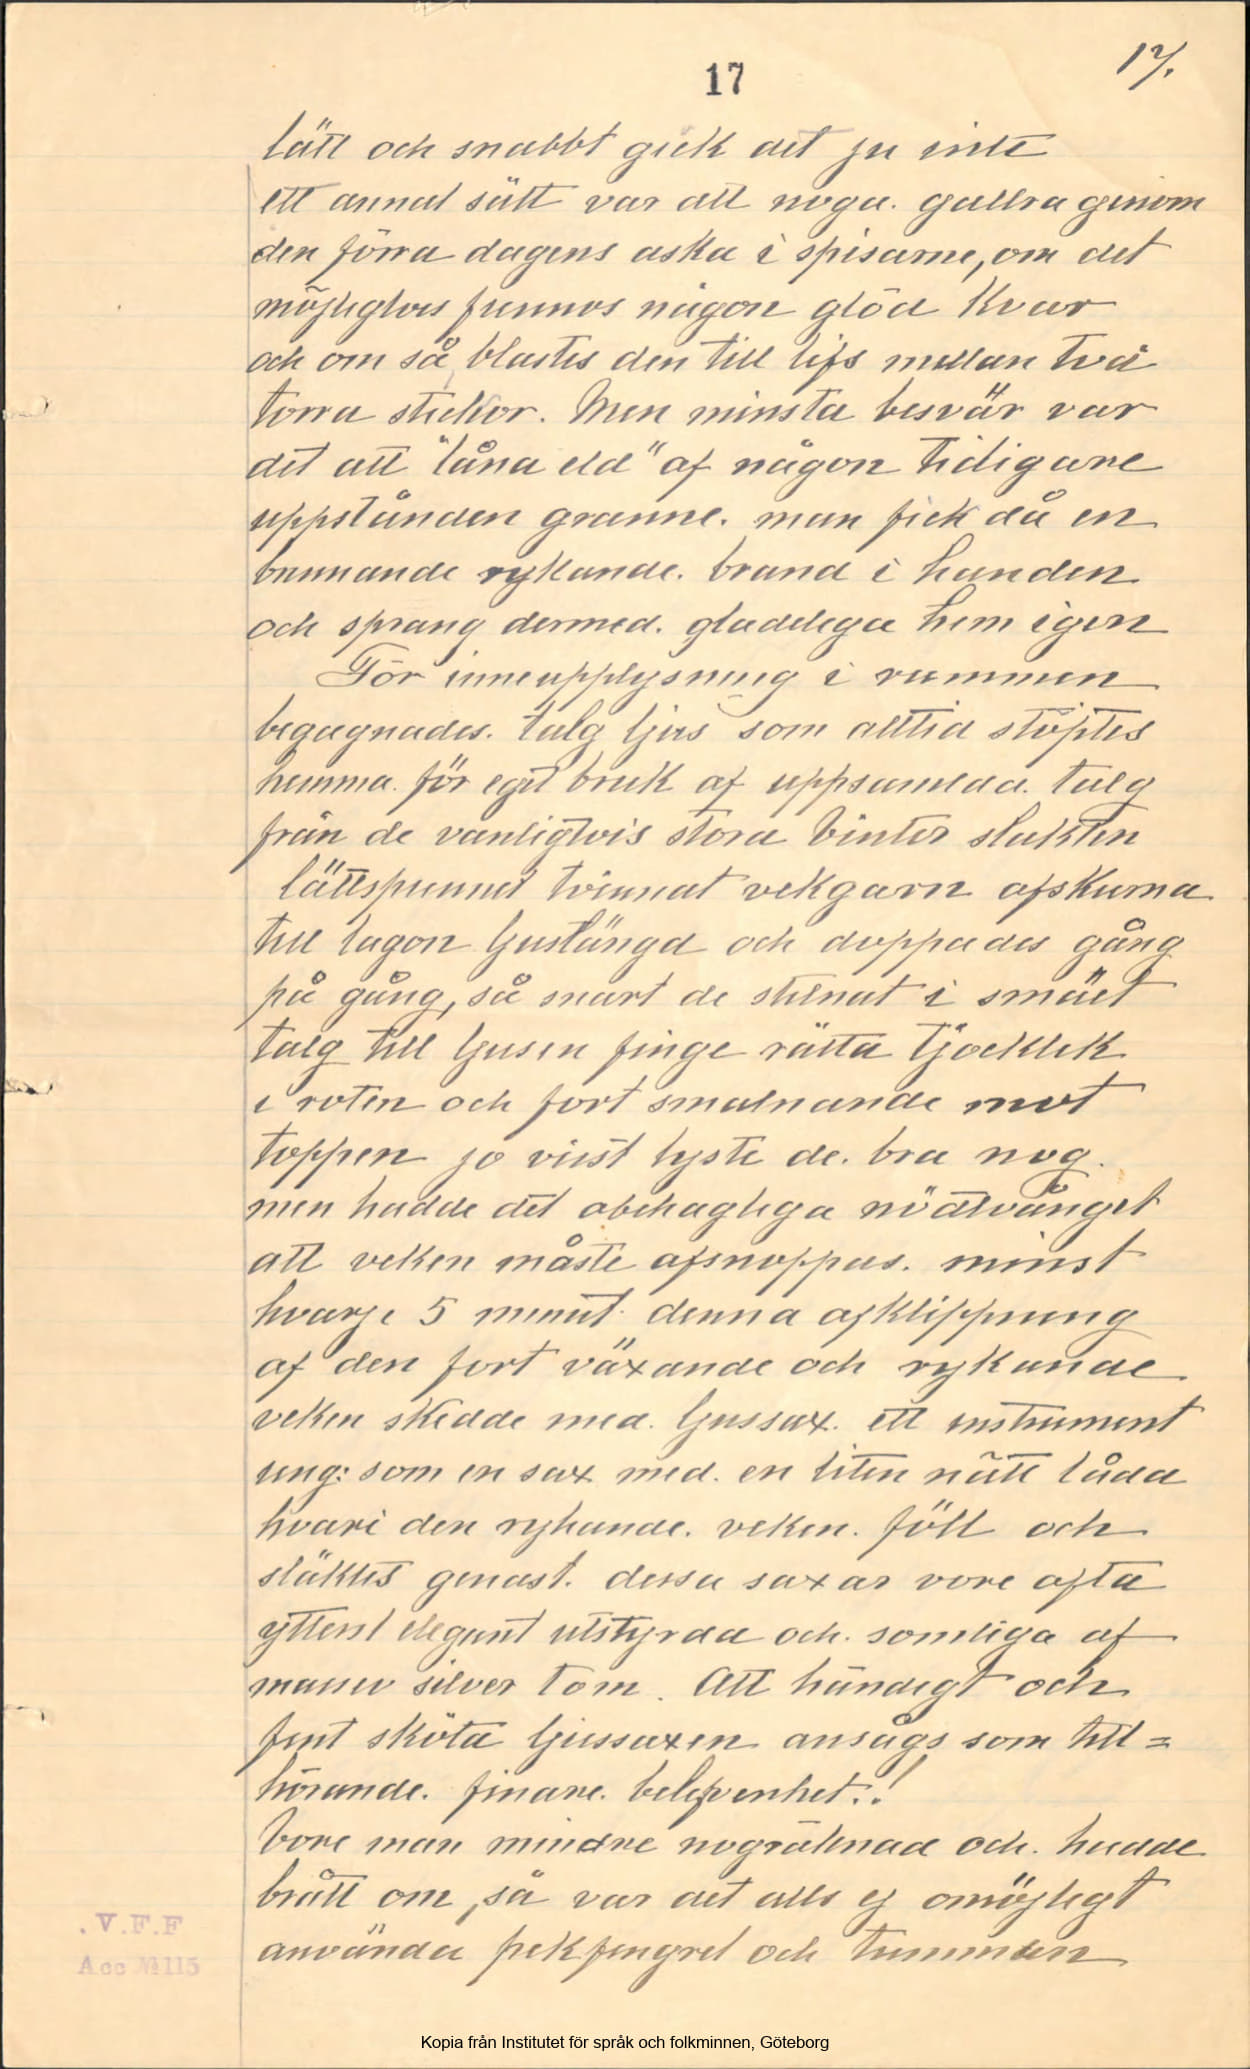 17
17.
lätt och snabbt gick det ju inte
ett annat sätt var att noga. gallra genom
den förra dagens aska i spisarne, om det
möjligtvis funnos någon glöd kvar
och om så, blåstes den till lifs mellan två
torra stickor. Men minsta besvär var
det att "låna eld" af någon tidigare
uppstånden granne. man fick då en
brinnande rykande. brand i handen
och sprang dermed. gladeliga hem igen
För inneupplysning i rummen
begagnades. talg ljus som alltid stöptes
hemma. för eget bruk af uppsamlad. talg
från de vanligtvis stora vinter slakten
lättspunnet tvinnat vekgarn afskurna
till lagon ljuslängd och doppades gång
på gång, så snart de stelnat i smält
talg till ljusen finge rätta tjocklek
i roten och fort smalnande mot
toppen jo visst lyste de. bra nog.
men hadde det obehagliga nödtvånget
att veken måste afsnoppas. minst
hvarje 5 minut. denna afklippning
af den fort växande och rykande
veken skedde med. ljussax. ett instrument
ung: som en sax med. en liten nätt låda
hvari den rykande. veken. föll och
släktes genast. dessa saxar vore ofta
ytterst elegant utstyrda och. somliga af
massiv silver tom. Att händigt och
fint sköta ljussaxen ansågs som till=
hörande. finare. belefvenhet.!
Vore man mindre nogräknad och. hadde
brått om, så var det alls ej omöjligt
använda pekfingret och tummen
. V. F. F
Acc № 115
Kopia från Institutet för språk och folkminnen, Göteborg